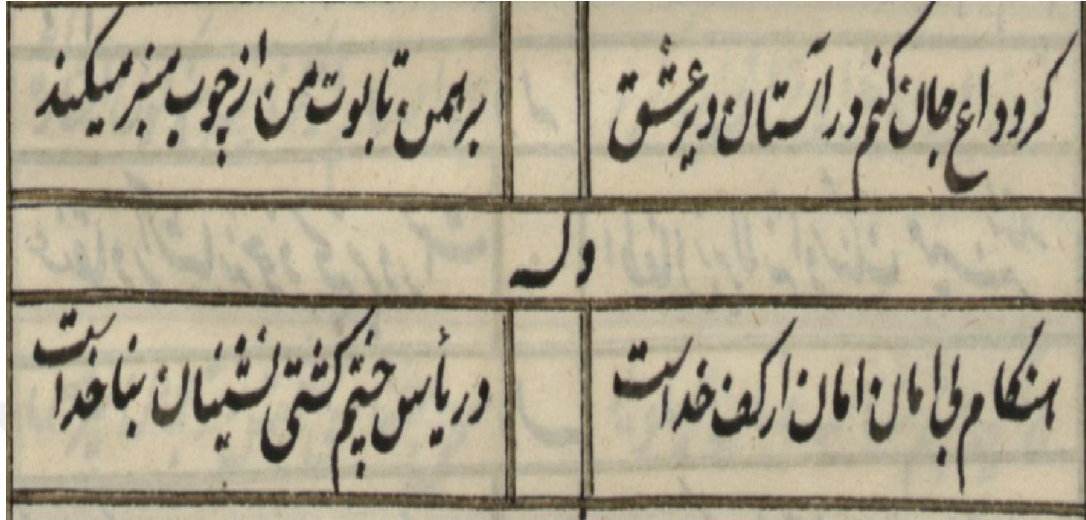 کر وداع جان کنم در آستان دیر عشق
برهمن تابوت من از چوب منبر میکند
وله
هنگام بی امان امان از کف خداست
در یأس چشم کشتی نشینان بناخداست